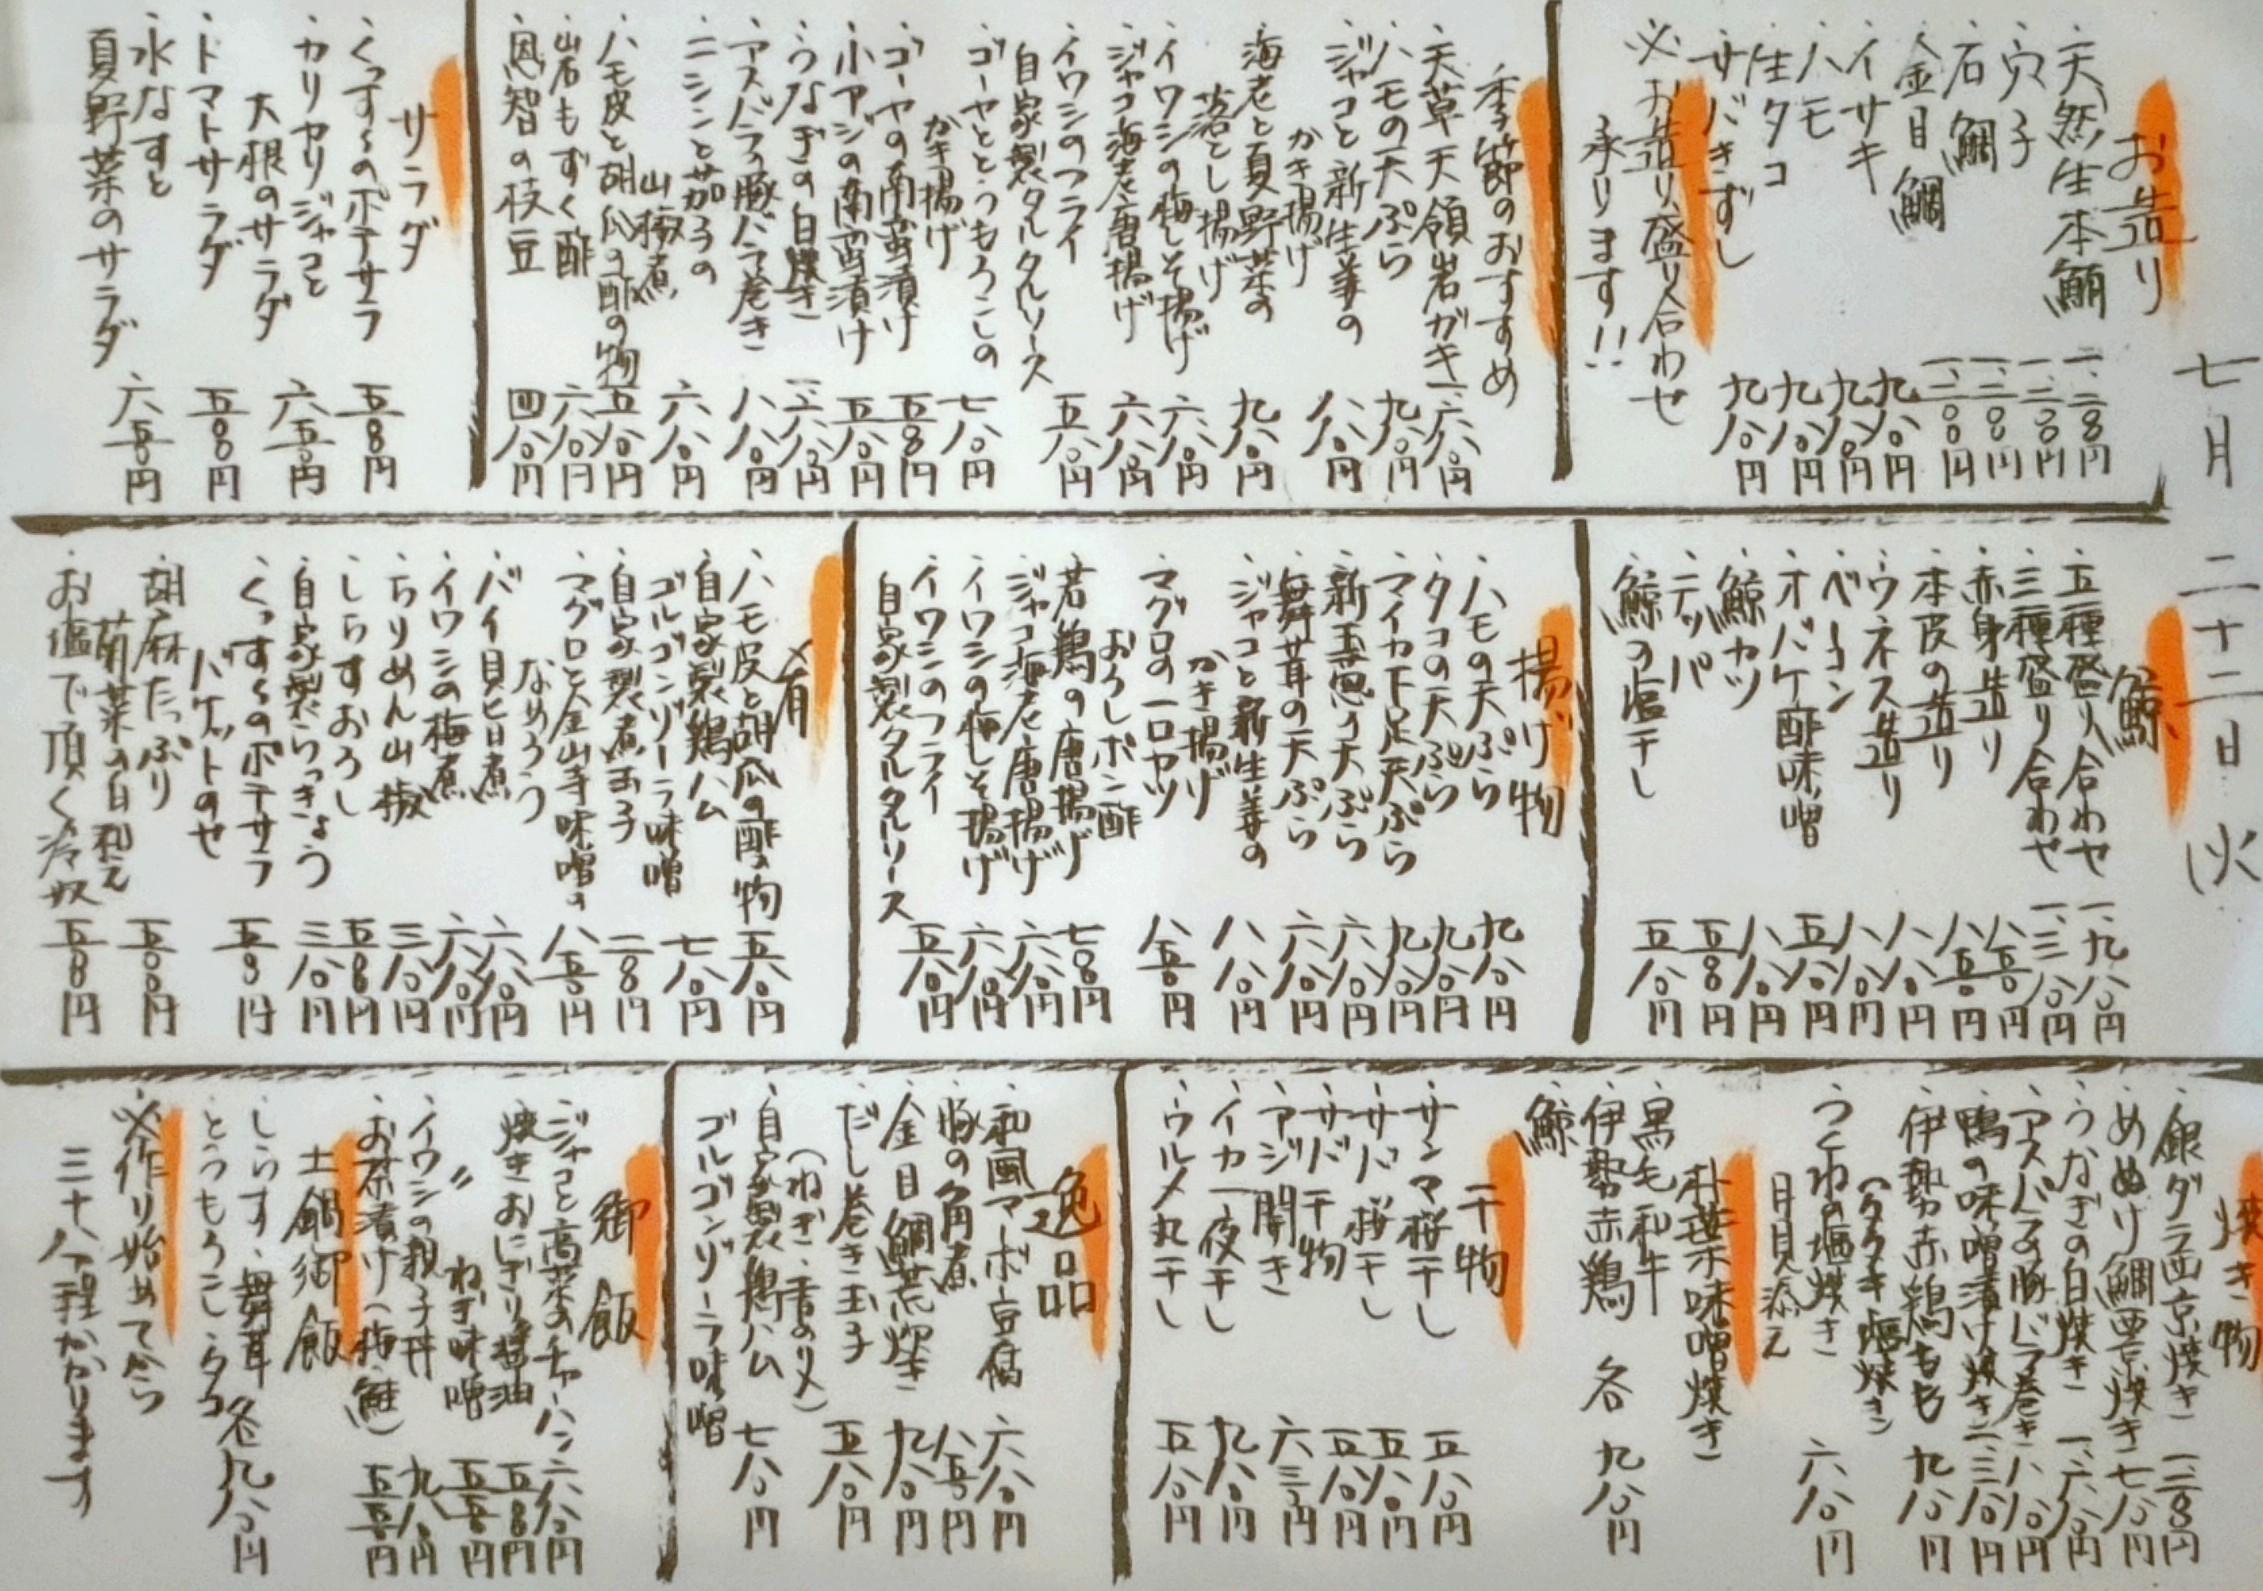 七月二十二日火
お造り
・天然生本鮪 一、二八〇円
・穴子 一、二八〇円
・石鯛 一、二八〇円
・金目鯛 一、二八〇円
・イサキ 九八〇円
・ハモ 九八〇円
・生タコ 九八〇円
・サバきずし 九八〇円
※お造り盛り合わせ
承ります!!
季節のおすすめ
・天草天領岩ガキ 一、六八〇円
・ハモの天ぷら 九八〇円
・ジャコと新生姜の
かき揚げ 八八〇円
・海老と夏野菜の
落とし揚げ 九八〇円
・イワシの梅しそ揚げ 六八〇円
・ジャコ海老唐揚げ 六八〇円
・イワシのフライ
自家製タルタルソース 五八〇円
・ゴーヤととうもろこしの
かき揚げ 七八〇円
・ゴーヤの南蛮漬け 五八〇円
・小アジの南蛮漬け 五八〇円
・うなぎの白焼き 一、六八〇円
・アスパラの豚バラ巻き 八八〇円
・ニシンと茄子の
山椒煮 六八〇円
・ハモ皮と胡瓜の酢の物 五八〇円
・岩もずく酢 六八〇円
・恩智の枝豆 四八〇円
サラダ
・くっすーのポテサラ 五八〇円
・カリカリジャコと
大根のサラダ 六五〇円
・トマトサラダ 五八〇円
・水なすと
夏野菜のサラダ 六五〇円
鯨
・五種盛り合わせ 一、九八〇円
・三種盛り合わせ 一、三八〇円
・赤身造り 八五〇円
・本皮の造り 八五〇円
・ウネス造り 八八〇円
・ベーコン 八八〇円
・オバケ酢味噌 五八〇円
・鯨カツ 八八〇円
・テッパ 五八〇円
・鯨の塩干し 五八〇円
揚げ物
・ハモの天ぷら 九八〇円
・タコの天ぷら 九八〇円
・マイカ下足天ぷら 九八〇円
・新玉葱の天ぷら 六八〇円
・舞茸の天ぷら 六八〇円
・ジャコと新生姜の
かき揚げ 八八〇円
・マグロの一口カツ
おろしポン酢 八五〇円
・若鶏の唐揚げ 七八〇円
・ジャコ海老唐揚げ 六八〇円
・イワシの梅しそ揚げ 六八〇円
・イワシのフライ
自家製タルタルソース 五八〇円
肴
・ハモ皮と胡瓜の酢の物 五八〇円
・自家製鶏ハム
ゴルゴンゾーラ味噌 七八〇円
・自家製煮玉子 二八〇円
・マグロと金山寺味噌の
なめろう 八五〇円
・バイ貝旨煮 六八〇円
・イワシの梅煮 六八〇円
・ちりめん山椒 三八〇円
・しらすおろし 五八〇円
・自家製らっきょう 三八〇円
・くっすーのポテサラ
バケットのせ 五八〇円
・胡麻たっぷり
菊菜の白和え 五八〇円
・お塩で頂く冷奴 五八〇円
焼き物
・銀ダラ西京焼き 一、二八〇円
・めぬけ鯛西京焼き 七八〇円
・うなぎの白焼き 一、六八〇円
・アスパラの豚バラ巻き 八八〇円
・鴨の味噌漬け焼き 一、三八〇円
・伊勢赤鶏もも
(タタキ・塩焼き) 九八〇円
・つくねの塩焼き
月見添え 六八〇円
朴葉味噌焼き
・黒毛和牛
・伊勢赤鶏 各九八〇円
・鯨
干物
・サンマ桜干し 五八〇円
・サバ桜干し 五八〇円
・サバ干物 五八〇円
・アジ開き 六三〇円
・イカ一夜干し 九八〇円
・ウルメ丸干し 五八〇円
逸品
・和風マーボ豆腐 六八〇円
・豚の角煮 八五〇円
・金目鯛荒炊き 九八〇円
・だし巻き玉子
(ねぎ・青のり) 五八〇円
・自家製鶏ハム
ゴルゴンゾーラ味噌 七八〇円
御飯
・ジャコと高菜のチャーハン 六八〇円
・焼きおにぎり醤油 五八〇円
・〃 ねぎ味噌 五五〇円
・イワシの親子丼 九八〇円
・お茶漬け(梅・鮭) 五五〇円
土鍋御飯
・しらす・舞茸
・とうもろこし・タコ 各九八〇円
※作り始めてから
三十八分程かかります